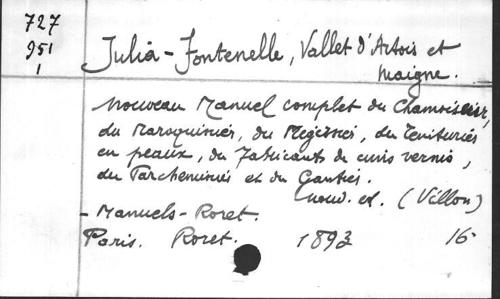 727
951
1
Julia-Fontenelle, Vallet d'Artois et
Maigne.
Nouveau Manuel complet du Chamoiseur,
du Maroquinier, du Mégissier, du Teinturier
en peaux, du Fabricant de cuirs vernis,
du Parcheminier et du Gantier.
Nouv. ed. (Villon)
- Manuels-Roret.
Paris. Roret. 1893 16-